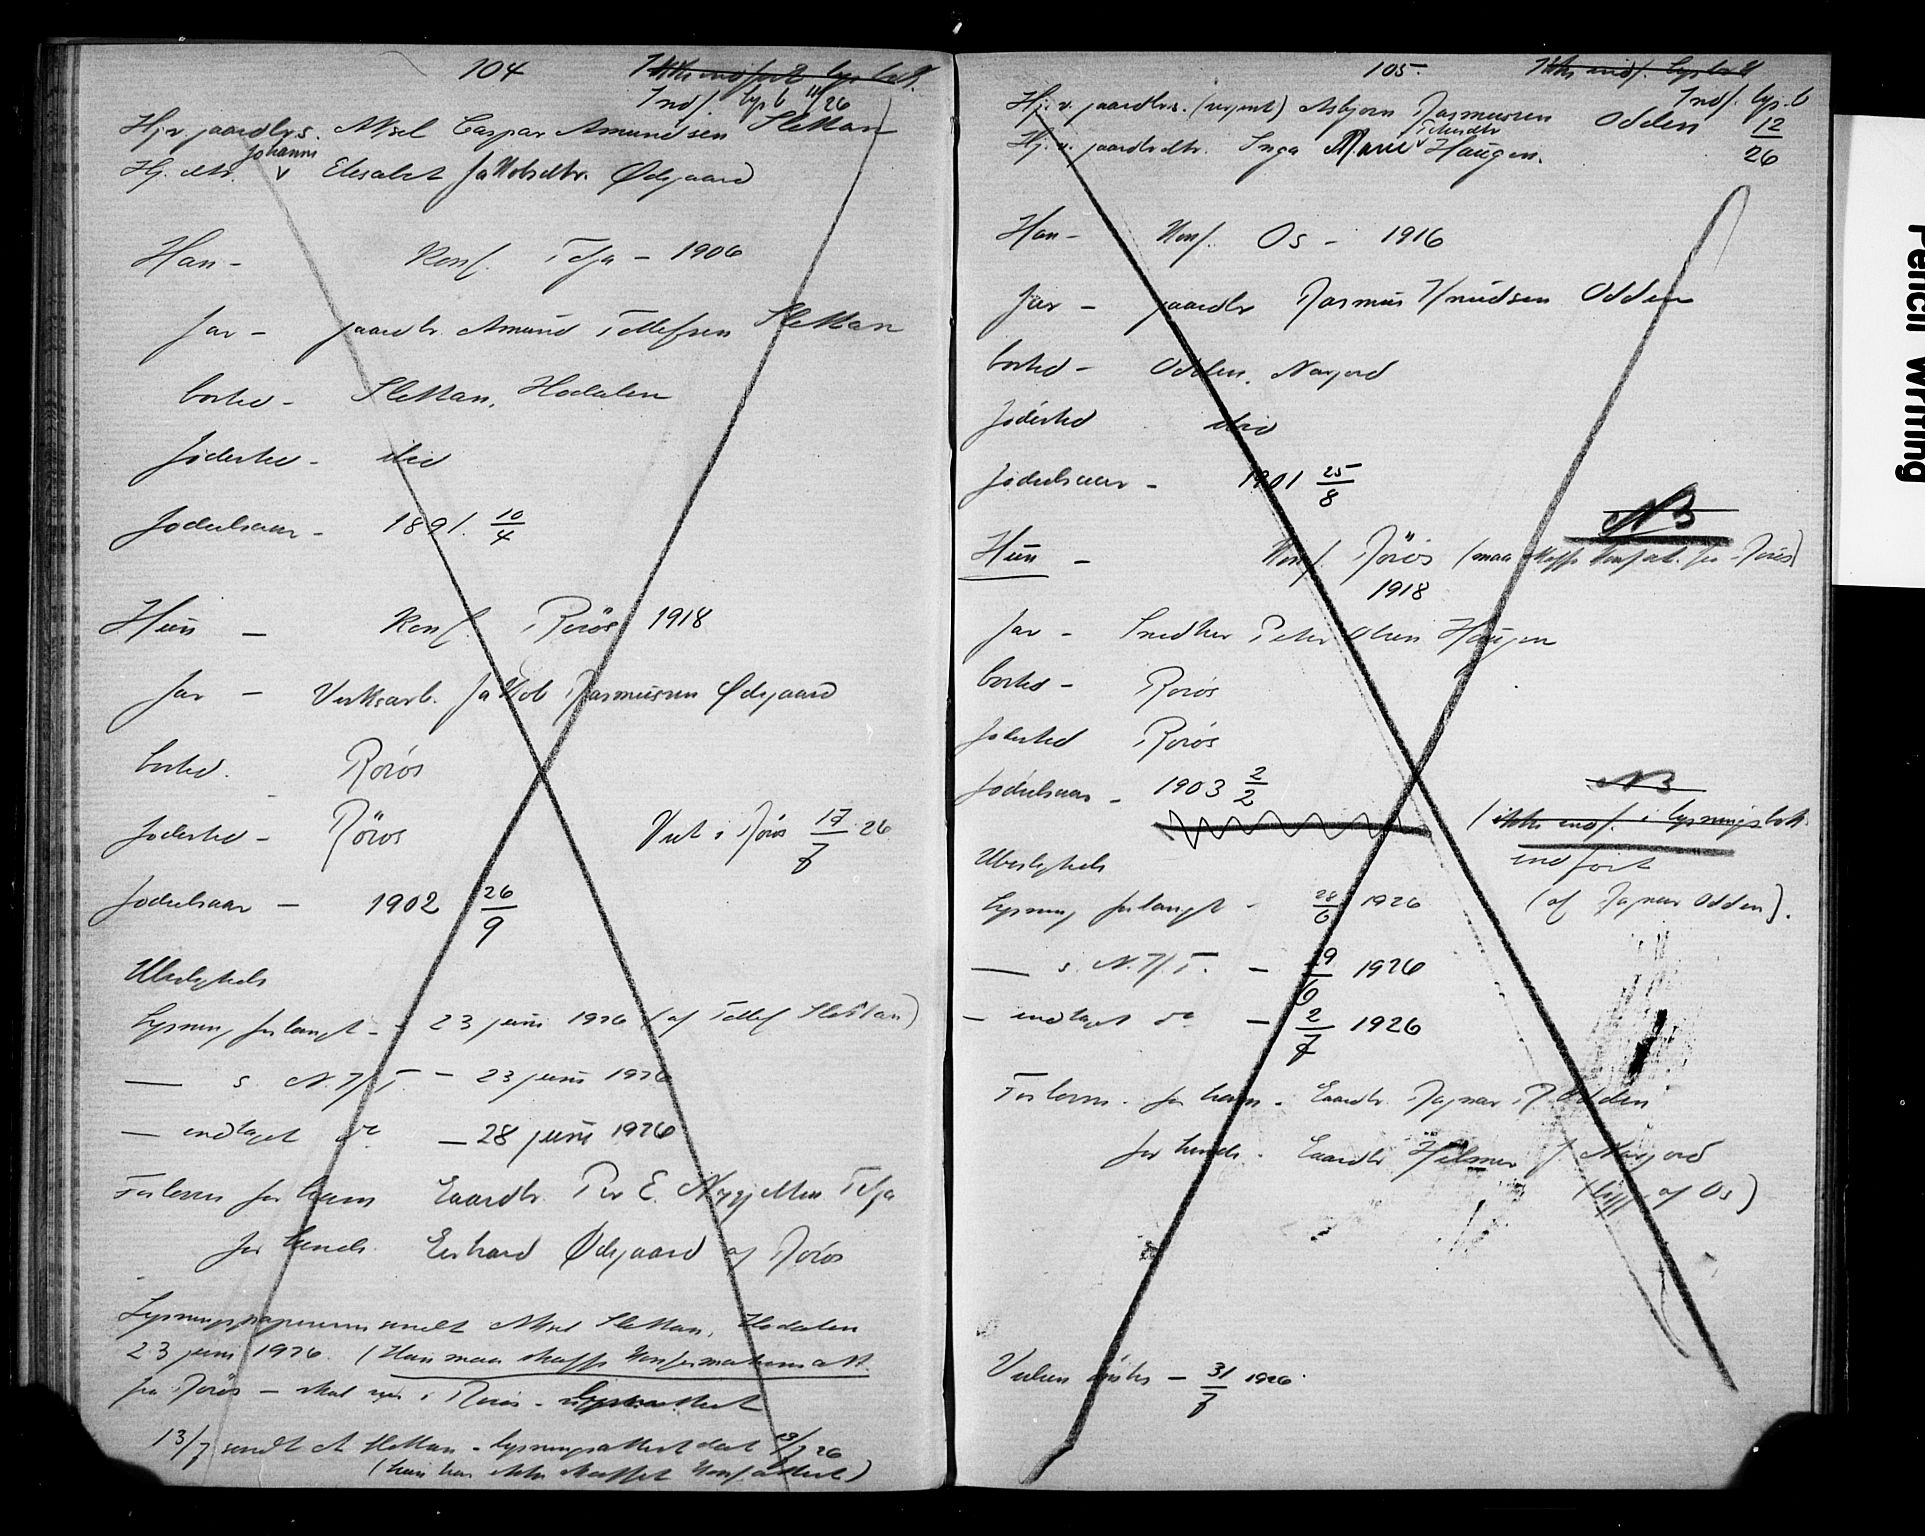 104
Ikke indført lysbok.
Indf. lysb 11/26
Hj.v. gaardbrs. Aksel Caspar Amundsen Slettan
Johanne
Hj. dtr. v Elisabet Jakobsdtr. Ødegaard
Han - Konf. Tolga - 1906
far - gaardbr. Amund Tollefsen Slettan
bosted - Slettan, Hodalen
fødested - ibid
fødselsaar - 1891. 10/4
Hun - Konf. Røros 1918
far - Verksarb. Jakob Rasmussen Ødegaard
bosted. Røros
fødested - Røros Viet i Røros 17/7 26
fødselsaar - 1902 26/9
Ubeslegtede
Lysning forlangt - 23 juni 1926 (af Tollef Slettan)
— s. N.K.T. - 23 juni 1926
— indtaget do - 28 juni 1926
Forlover for ham Gaardbr. Per E. Nygjelten Tolga
for hende. Erhard Ødegaard af Røros
Lysningspapirerne sendt Aksel Slettan, Hodalen
23 juni 1926. (Han maa skaffe Konfirmationsatt.
fra Røros - skal vies i Røros -
13/7 sendt A Slettan - lysningsattest dat 13/7 26
(han har ikke skaffet Konf.attest)
105.
Ikke indf. lysbok
Indf. lys.b
12/26
Hj. v. gaardbrs. (ugent) Asbjørn Rasmussen Odden
Petersdtr
Hj. v. gaardbrdtr. Inga Marie v Haugen.
Han - Konf. Os - 1916
far - gaardbr Rasmus Knudsen Odden
bosted - Odden, Narjord
fødested ibid
fødselsaar - 1901 25/8
NB
Hun - Konf. Røros (maa skaffe Konf.at. fra Røros)
1918
far - Snedker Peter Olsen Haugen
bosted - Røros
fødested Røros
fødselsaar - 1903 2/2
NB
(ikke indf. i lysningsbok
indført
Ubeslegtede
Lysning forlangt - 28/6 1926 (af Ragnar Odden).
— s. N.K.T. - 29/6 1926
— indtaget do - 2/7 1926
Forlover. for ham - Gaardbr. Ragnar R. Odden
for hende - Gaardbr Hilmer J. Narjord
(begge af Os)
Vielsen ønskes - 31/7 1926.
Pencil Writing